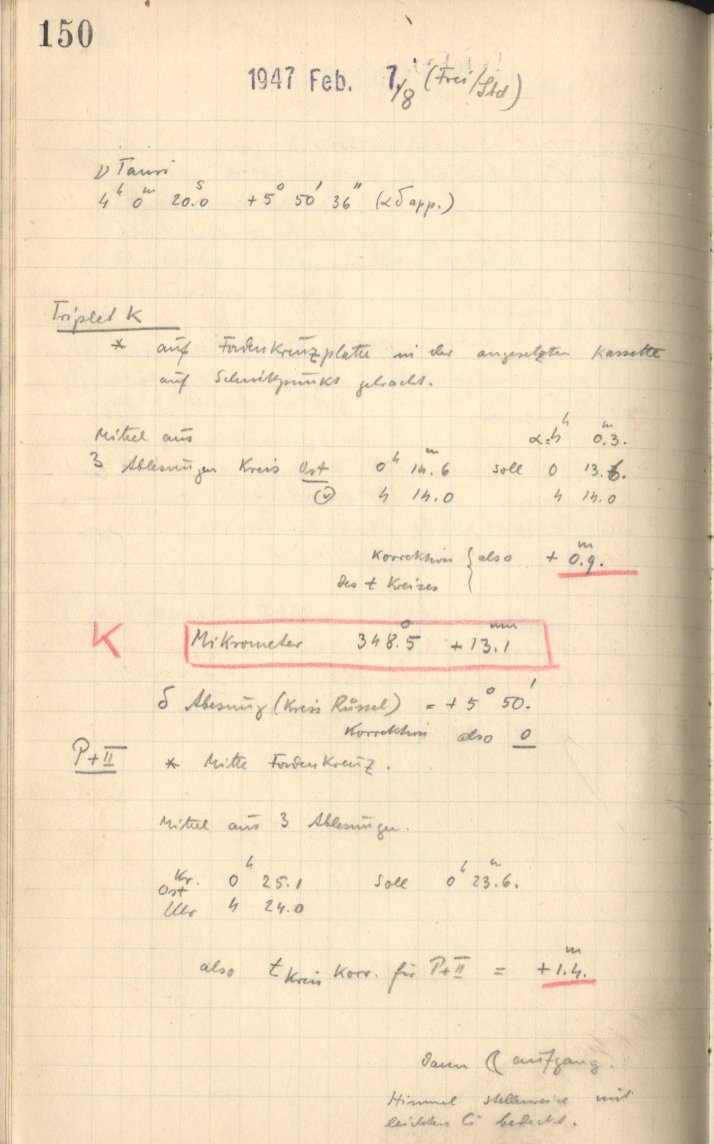 150
1947 Feb. 7./8 (Frei/Std)
ν Tauri
4ʰ 0ᵐ 20.0ˢ +5° 50′ 36″ (αδ app.)
Triplet K
* auf Fadenkreuzplatte in der angesetzten Kassette
auf Schnittpunkt gebracht.
Mittel aus α=4ʰ 0.3ᵐ.
3 Ablesungen Kreis Ost 0ʰ 14.6ᵐ soll 0 13.6.
4 14.0 4 14.0
Korrektion { also +0.9ᵐ.
des t Kreises
K Mikrometer 348.5° +13.1ᵐᵐ
δ Abesung (Kreis Rüssel) = +5° 50.′
Korrektion also 0
P+II * Mitte Fadenkreuz.
Mittel aus 3 Ablesungen.
Kr. Ost 0ʰ 25.1 Soll 0ʰ 23.6ᵐ.
Uhr 4 24.0
also t Kreis Korr. für P+II = +1.4ᵐ.
Dann ☾ aufgang.
Himmel stellenweise mit
leichten Ci bedeckt.